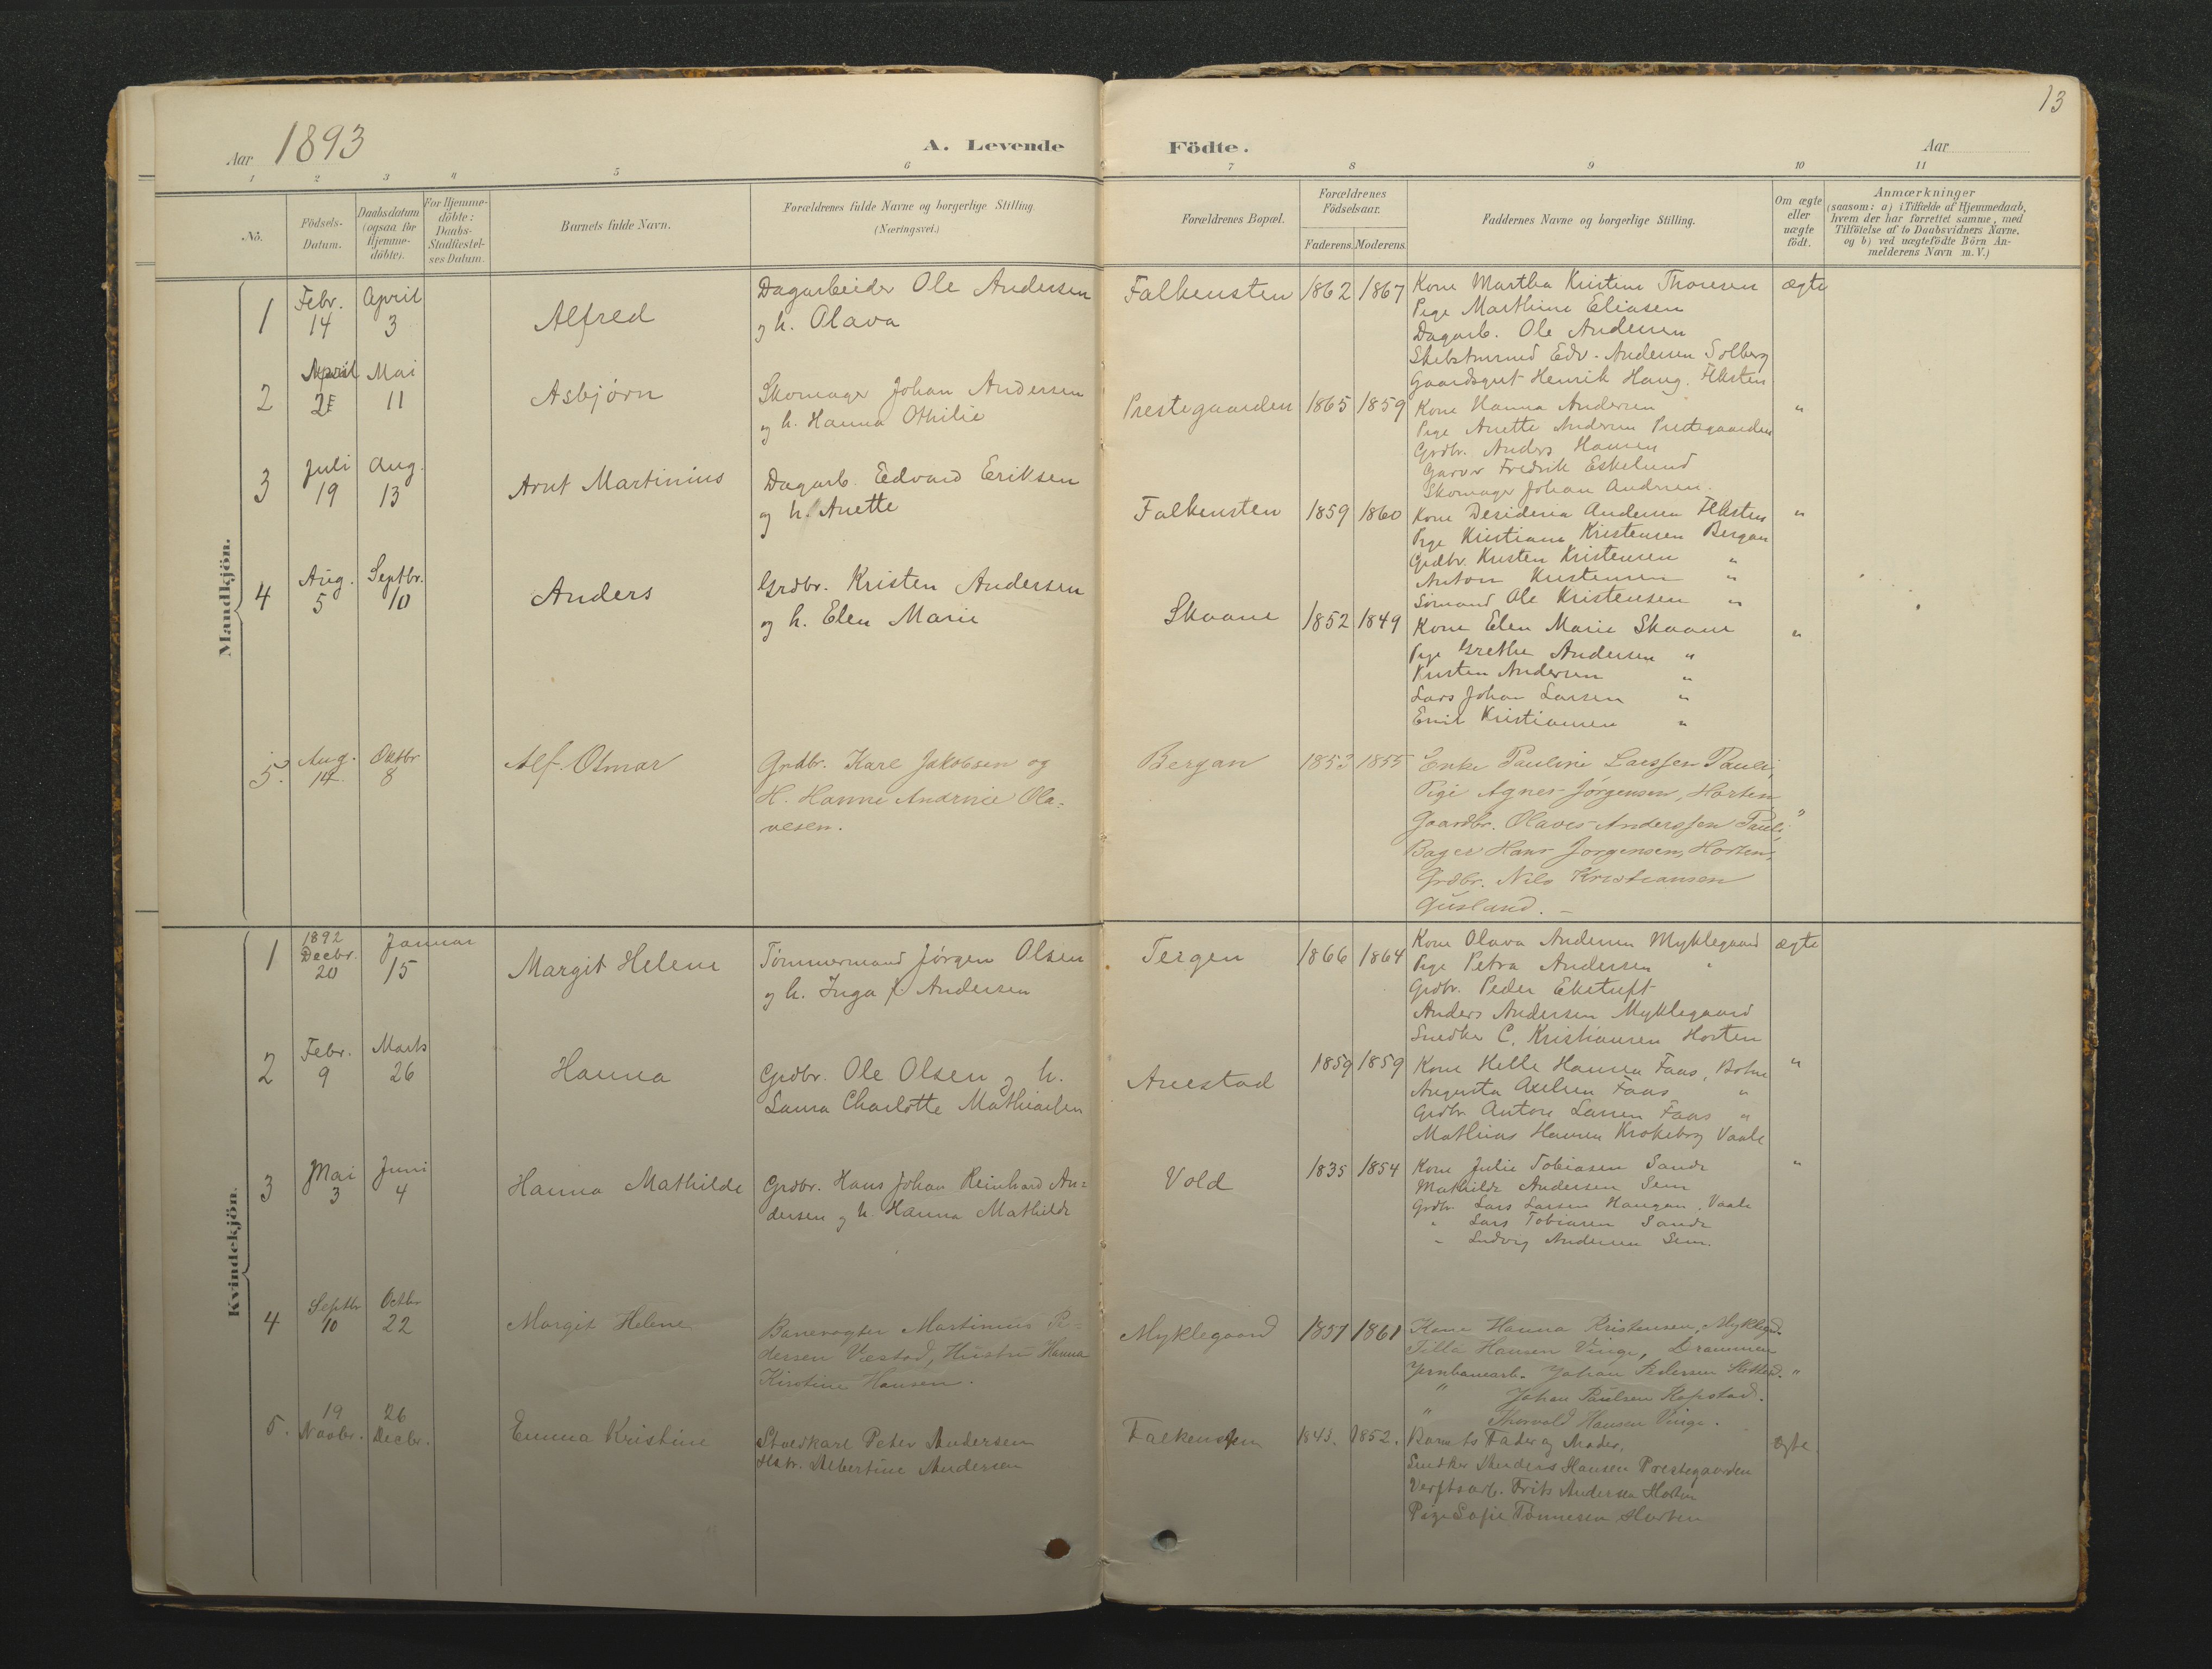 13
Aar 1893
A. Levende Födte.
Aar
1 2 3 4 5 6 7 8 9 10 11
No.
Födsels-
Datum.
Daabsdatum
(ogsaa for
Hjemme-
döbte).
For Hjemme-
döbte:
Daabs-
Stadfæstel-
ses Datum.
Barnets fulde Navn.
Forældrenes fulde Navne og borgerlige Stilling.
(Næringsvei.)
Forældrenes Bopæl.
Forældrenes
Födselsaar.
Faderens. Moderens.
Faddernes Navne og borgerlige Stilling.
Om ægte
eller
uægte
födt.
Anmærkninger
(saasom: a) i Tilfælde af Hjemmedaab,
hvem der har forrettet samme, med
Tilföielse af to Daabsvidners Navne,
og b) ved uægtefödte Börn An-
melderens Navn m. V.)
Mandkjön.
1
Febr. 14
April 3
Alfred
Dagarbeider Ole Andersen
og h. Olava
Falkensten
1862 1867
Kone Martha Kristine Thoresen
Pige Marthine Eliasen
Dagarb. Ole Andersen
Edv. Andersen Solberg
Gaardsgut Henrik Haug. Flksten
ægte
2
April
Mai 11
Asbjørn
Skomager Johan Andersen
og h. Hanna Othilie
Prestegaarden
1865 1859
Kone Hanna Andersen
Pige Anette Andersen Prestegaarden
Grdbr. Anders Hansen
Garver Fredrik Eskelund
Skomager Johan Andersen.
"
3
Juli 19
Aug. 13
Arnt Martinius
Dagarb. Edvard Eriksen
og h. Anette
Falkensten
1859 1860
Kone Desideria Andersen Flksten
Pige Kristiane Kristensen Bergan
Grdbr. Kristen Kristensen "
Anton Kristensen "
Sömand Ole Kristensen "
"
4
Aug. 5
Septbr. 10
Anders
Grdbr. Kristen Andersen
og h. Elen Marie
Skaane
1852 1849
Kone Elen Marie Skaane
Pige Grethe Andersen "
Kristen Andersen "
Lars Johan Larsen "
Emil Kristiansen "
"
5.
Aug. 14.
Oktbr 8
Alf. Otmar
Grdbr. Karl Jakobsen og
H. Hanne Andrine Ola-
vesen.
Bergan
1853 1855
Enke Pauline Larssen Pauli,
Pige Agnes Jörgensen, Horten,
Gaardbr. Olaves Anderssen Pauli,
Bager Hans Jörgensen, Horten,
Grdbr. Nils Kristiansen
Gusland. –
"
Kvindekjön.
1
1892
Decbr. 20
Januar 15
Margit Helene
Tömmermand Jörgen Olsen
og h. Inga f. Andersen
Tergen
1866 1864
Kone Olava Andersen Myklegaard
Pige Petra Andersen "
Grdbr. Peder Eketuft
Anders Andersen Myklegaard
Snedker C. Kristiansen Horten
ægte
2
Febr. 9
Marts 26
Hanna
Grdbr. Ole Olsen og h.
Laura Charlotte Mathiasen
Anestad
1859 1859
Kone Helle Hanna Faas,
Augusta Axelsen Faas "
Grdbr Anton Larsen Faas "
Mathias Hansen Krokeborg Vaale
"
3
Mai 3
Juni 4
Hanna Mathilde
Grdbr. Hans Johan Reinhard An-
dersen og h. Hanna Mathilde
Vold
1835 1854
Kone Julie Tobiasen Sande
Mathilde Andersen Sem
Grdbr Lars Larsen Haugan, Vaale
" Lars Tobiasen Sande
" Ludvig Andersen Sem.
"
4
Septbr 10
Octbr 22
Margit Helene
Banevogter Martinius Pe-
dersen Væstad, Hustru Hanna
Kirstine Hansen.
Myklegaard
1857 1861
Kone Hanna Kristensen, Myklegd.
Tilla Hansen Vinge, Drammen
Jernbanearb. Johan Pedersen
" Johan Paulsen Kopstad.
" Thorvald Hansen Vinge.
"
5.
19 Novbr.
26 Decbr.
Emma Kristine
Stuedkarl Peter Andersen
Hstr. Albertine Andersen
Falkensten
1843. 1852.
Barnets Fader og Moder,
Snedker Anders Hansen Prestegaarden
Verftsarb. Frits Andersen Horten
Pige Sofie Tönnesen Horten
ægte.